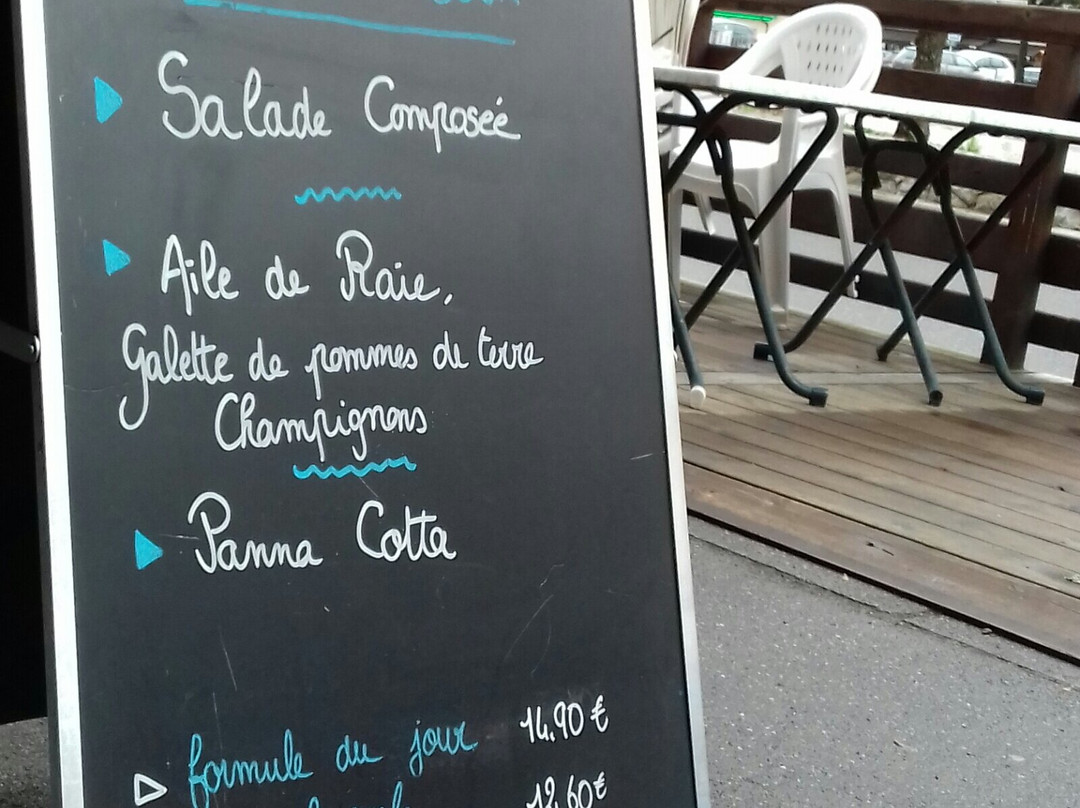 Salade Composeé
Aile de Raie,
Galette de pommes de terre
Champignons
Panna Cotta
formule du jour 14.90 €
12.60 €